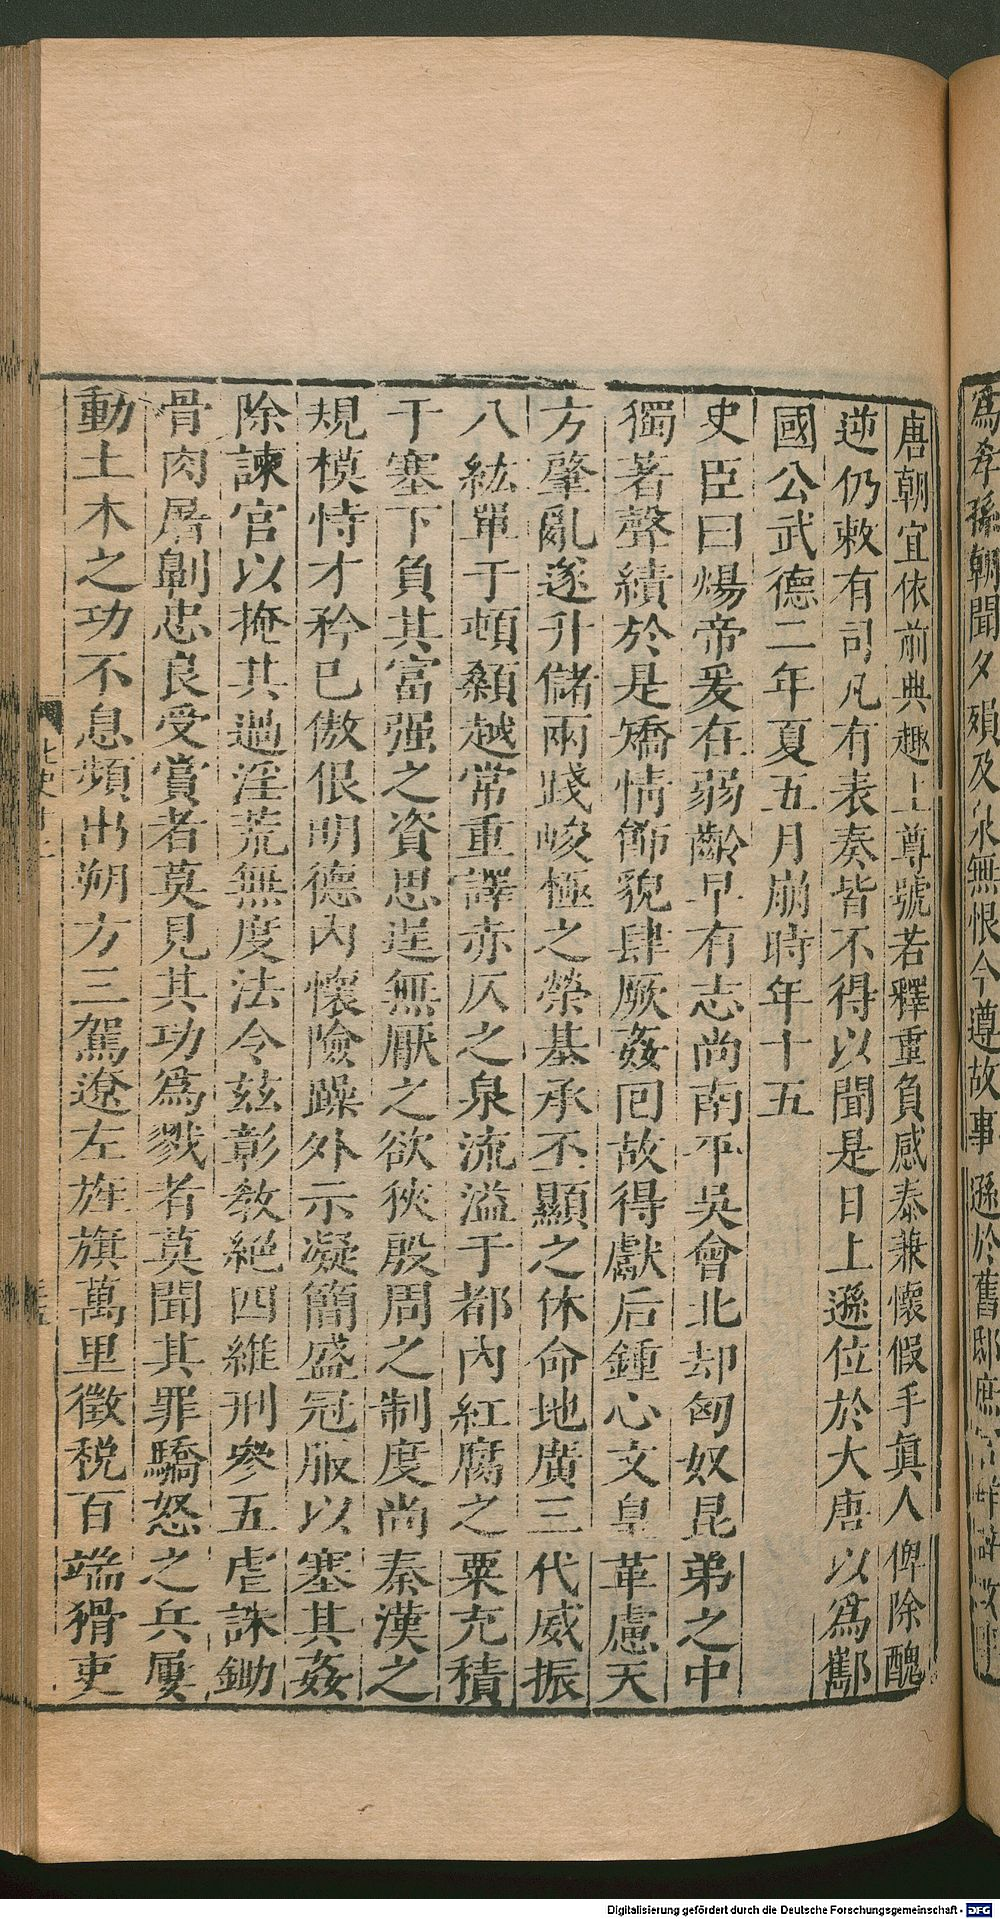 爲兮孫朝聞夕殞及泉無恨今遵故事遜於舊邸庶
唐朝宜依前典趣上尊號若釋重負感泰兼懷假手眞人俾除醜
逆仍敕有司凡有表奏皆不得以聞是日上遜位於大唐以爲酅
國公武德二年夏五月崩時年十五
史臣曰煬帝爰在弱齡早有志尚南平吳會北却匈奴昆弟之中
獨著聲績於是矯情飾貌肆厥姦回故得獻后鍾心文皇革慮天
方肇亂遂升儲兩踐峻極之榮基承丕顯之休命地廣三代威振
八紘單于頓顙越常重譯亦仄之泉流溢于都內紅腐之粟充積
于塞下負其富强之資思逞無厭之欲狹殷周之制度尚秦漢之
規模恃才矜已傲佷明德內懷險躁外示凝簡盛冠服以塞其姦
除諫官以掩其過淫荒無度法令玆彰敎絕四維刑參五虐誅鋤
骨肉屠勦忠良受賞者莫見其功爲戮者莫聞其罪驕怒之兵屢
動土木之功不息頻出朔方三駕遼左旌旗萬里徵稅百端猾吏
Digitalisierung gefördert durch die Deutsche Forschungsgemeinschaft - DFG